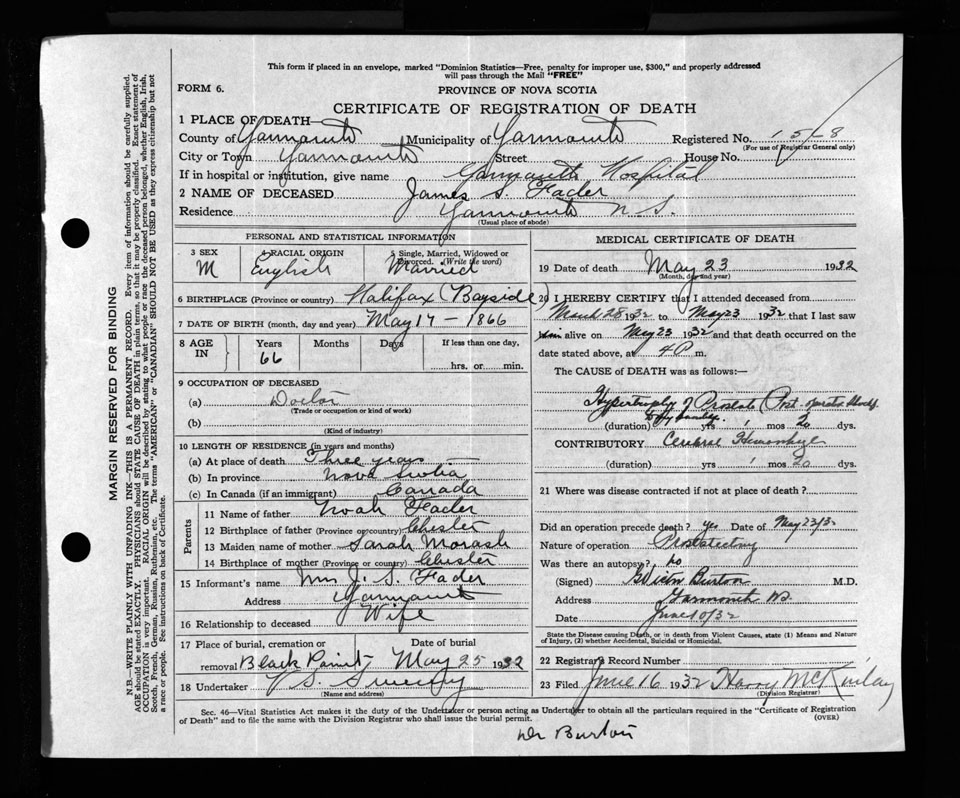 This form if placed in an envelope, marked "Dominion Statistics—Free, penalty for improper use, $300," and properly addressed
will pass through the Mail "FREE"
FORM 6.
PROVINCE OF NOVA SCOTIA
CERTIFICATE OF REGISTRATION OF DEATH
1 PLACE OF DEATH—
County of Yarmouth Municipality of Yarmouth Registered No. 158
(For use of Registrar General only)
City or Town Yarmouth Street House No.
If in hospital or institution, give name Yarmouth Hospital
2 NAME OF DECEASED James S. Fader
Residence Yarmouth N S.
(Usual place of abode)
MARGIN RESERVED FOR BINDING
N.B.—WRITE PLAINLY WITH UNFADING INK—THIS IS A PERMANENT RECORD. Every item of information should be carefully supplied.
AGE should be stated EXACTLY. PHYSICIANS should STATE CAUSE OF DEATH in plain terms, so that it may be properly classified. Exact statement of
OCCUPATION is very important. RACIAL ORIGIN will be described by stating to what people or race the deceased person belonged, whether English, Irish,
Scotch, French, German, Russian, Ruthenian, etc. The terms "AMERICAN" or "CANADIAN" SHOULD NOT BE USED as they express citizenship but not
a race or people. See instructions on back of Certificate.
PERSONAL AND STATISTICAL INFORMATION
3 SEX 4 RACIAL ORIGIN 5 Single, Married, Widowed or
Divorced. (Write the word)
M English Married
6 BIRTHPLACE (Province or country) Halifax (Bayside)
7 DATE OF BIRTH (month, day and year) May 17 – 1866
8 AGE IN Years Months Days If less than one day,
66 hrs. or min.
9 OCCUPATION OF DECEASED
(a) Doctor
(Trade or occupation or kind of work)
(b)
(Kind of industry)
10 LENGTH OF RESIDENCE (in years and months)
(a) At place of death Three years
(b) In province Nova Scotia
(c) In Canada (if an immigrant) Canada
Parents
11 Name of father Noah Fader
12 Birthplace of father (Province or country) Chester
13 Maiden name of mother Sarah Morash
14 Birthplace of mother (Province or country) Chester
15 Informant's name Mrs J. S. Fader
Address Yarmouth
16 Relationship to deceased Wife
17 Place of burial, cremation or Date of burial
removal Black Point May 25 1932
18 Undertaker V S. Sweeny
(Name and address)
MEDICAL CERTIFICATE OF DEATH
19 Date of death May 23 1932
(Month, day and year)
20 I HEREBY CERTIFY that I attended deceased from
March 28 1932 to May 23 1932 that I last saw
him alive on May 23 1932 and that death occurred on the
date stated above, at 4 P m.
The CAUSE of DEATH was as follows:—
Hypertrophy of Prostate (Post-operative
(duration) yrs 1 mos 20 dys.
CONTRIBUTORY Cerebral Hemorrhage
(duration) yrs 1 mos 20 dys.
21 Where was disease contracted if not at place of death?
Did an operation precede death? yes Date of May 23/32
Nature of operation Prostatectomy
Was there an autopsy? No
(Signed) Burton M.D.
Address Yarmouth NS
Date June 10/32
State the Disease causing Death, or in death from Violent Causes, state (1) Means and Nature
of Injury, (2) whether Accidental, Suicidal or Homicidal.
22 Registrar's Record Number
23 Filed June 16 1932 Harry McKinlay
(Division Registrar)
Sec. 46—Vital Statistics Act makes it the duty of the Undertaker or person acting as Undertaker to obtain all the particulars required in the "Certificate of Registration
of Death" and to file the same with the Division Registrar who shall issue the burial permit.
(OVER)
Dr Burton